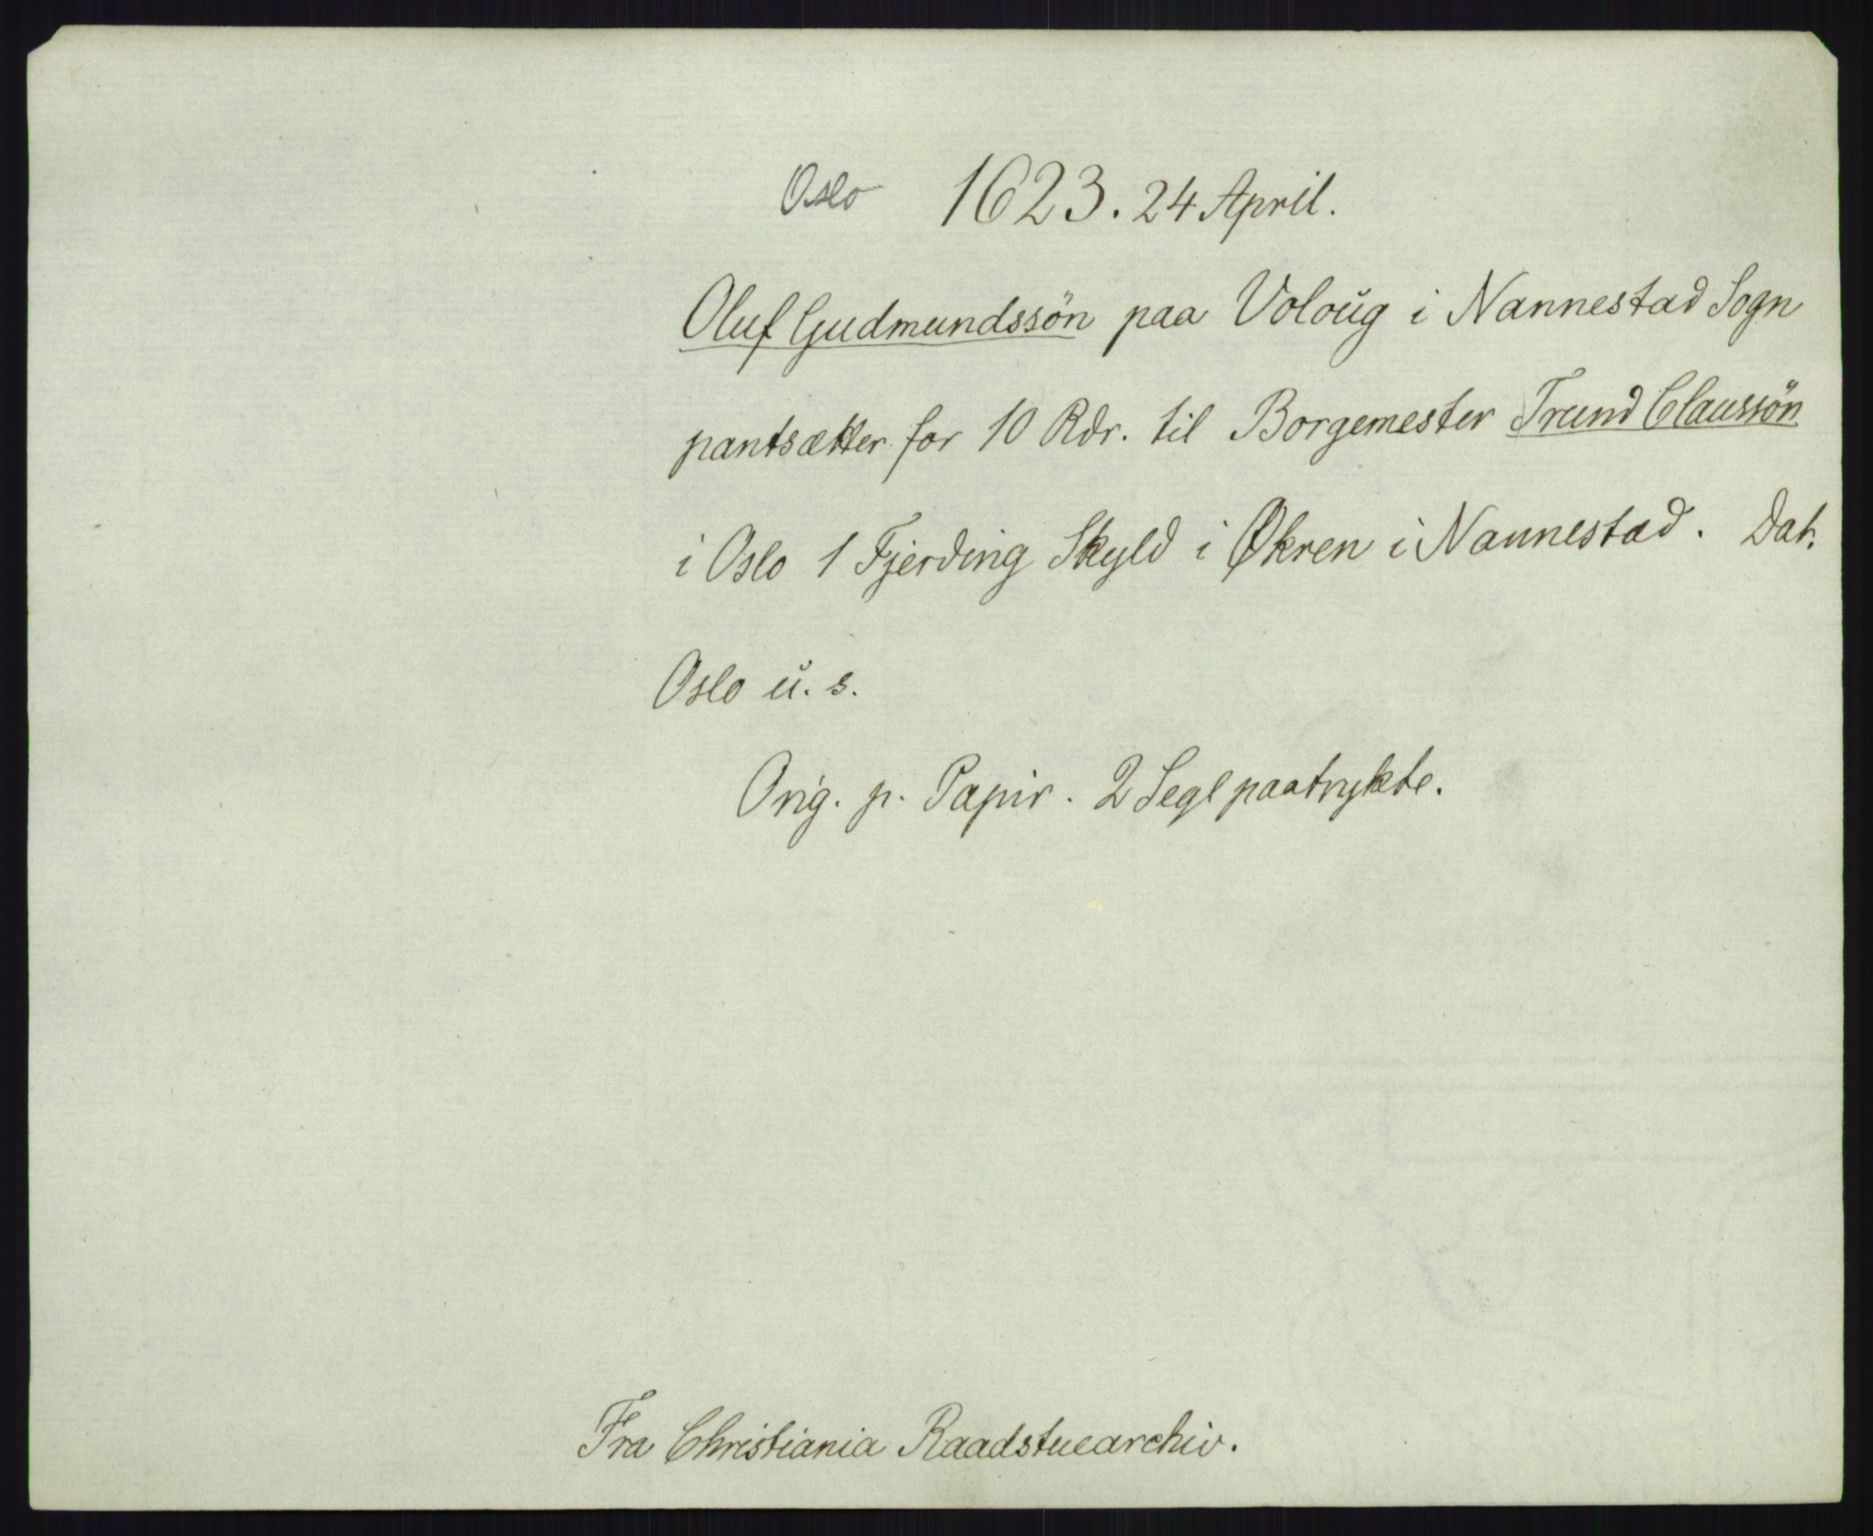 Oslo 1623. 24 April.
Oluf Gudmundssön paa Voloug i Nannestad Sogn
pantsætter for 10 Rdr. til Borgemester Trund Claussön
i Oslo 1 Fjerding Skyld i Økren i Nannestad. Dat.
Oslo u. s.
Orig. p. Papir. 2 Segl paatrykte.
Fra Christiania Raadstuearchiv.